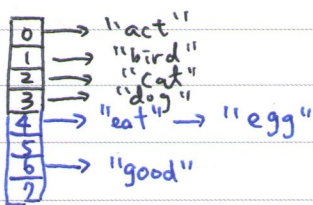 0 → "act"
1 → "bird"
2 → "cat"
3 → "dog"
4 → "eat" → "egg"
5
6 → "good"
7